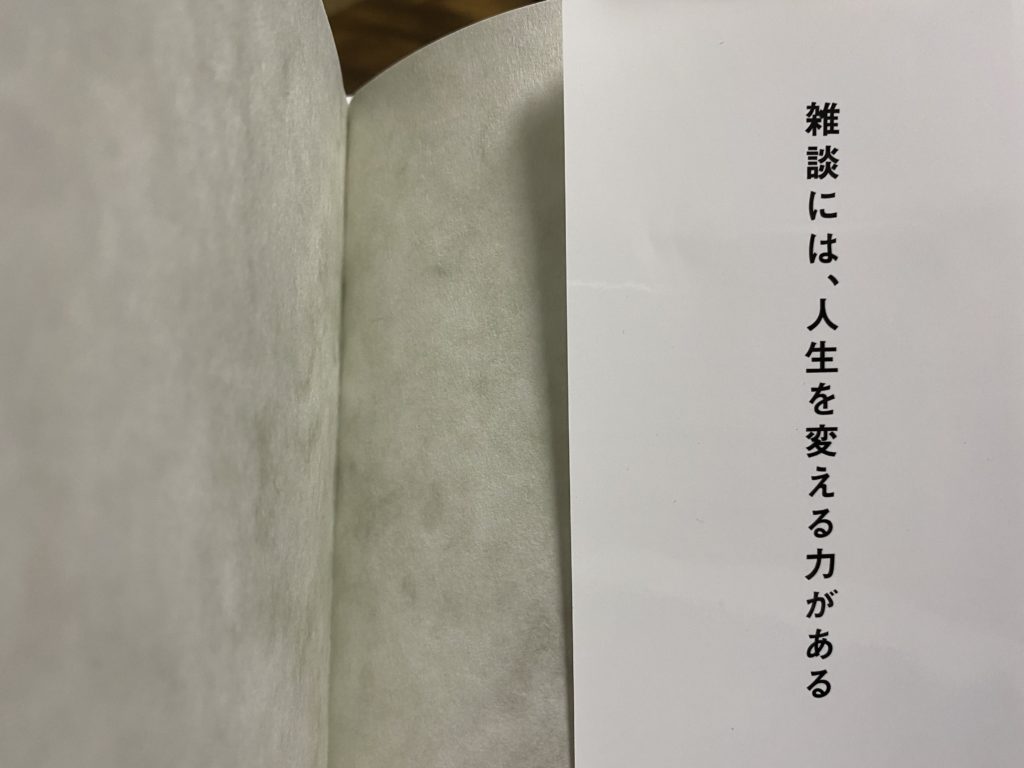 雑談には、人生を変える力がある